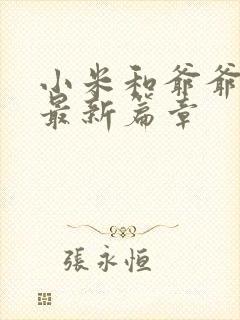 小米和爷爷
最新篇章
張永恒